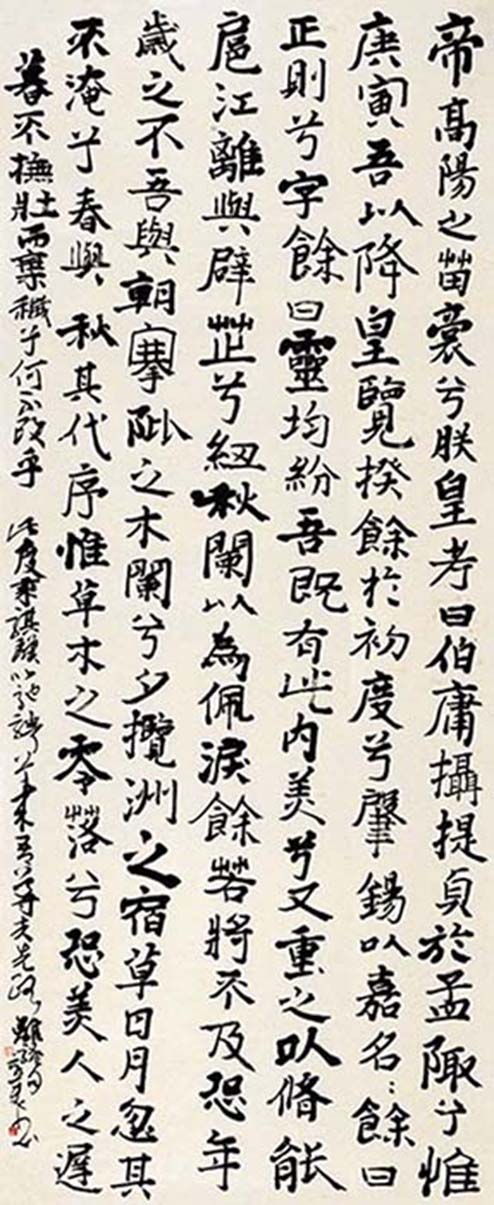 帝高陽之苗裔兮朕皇考曰伯庸攝提貞於孟陬兮惟
庚寅吾以降皇覽揆餘於初度兮肇錫以嘉名:餘曰
正則兮字餘曰靈均紛吾既有此內美兮又重之以脩能
扈江離與辟芷兮紐秋闌以為佩淚餘若將不及恐年
歲之不吾與朝搴阰之木闌兮夕攬洲之宿草日月忽其
不淹兮春與秋其代序惟草木之零落兮恐美人之遲
暮不撫壯而棄穢兮何不改乎 此度乘騏驥以馳騁兮來吾導夫先路 離騷句